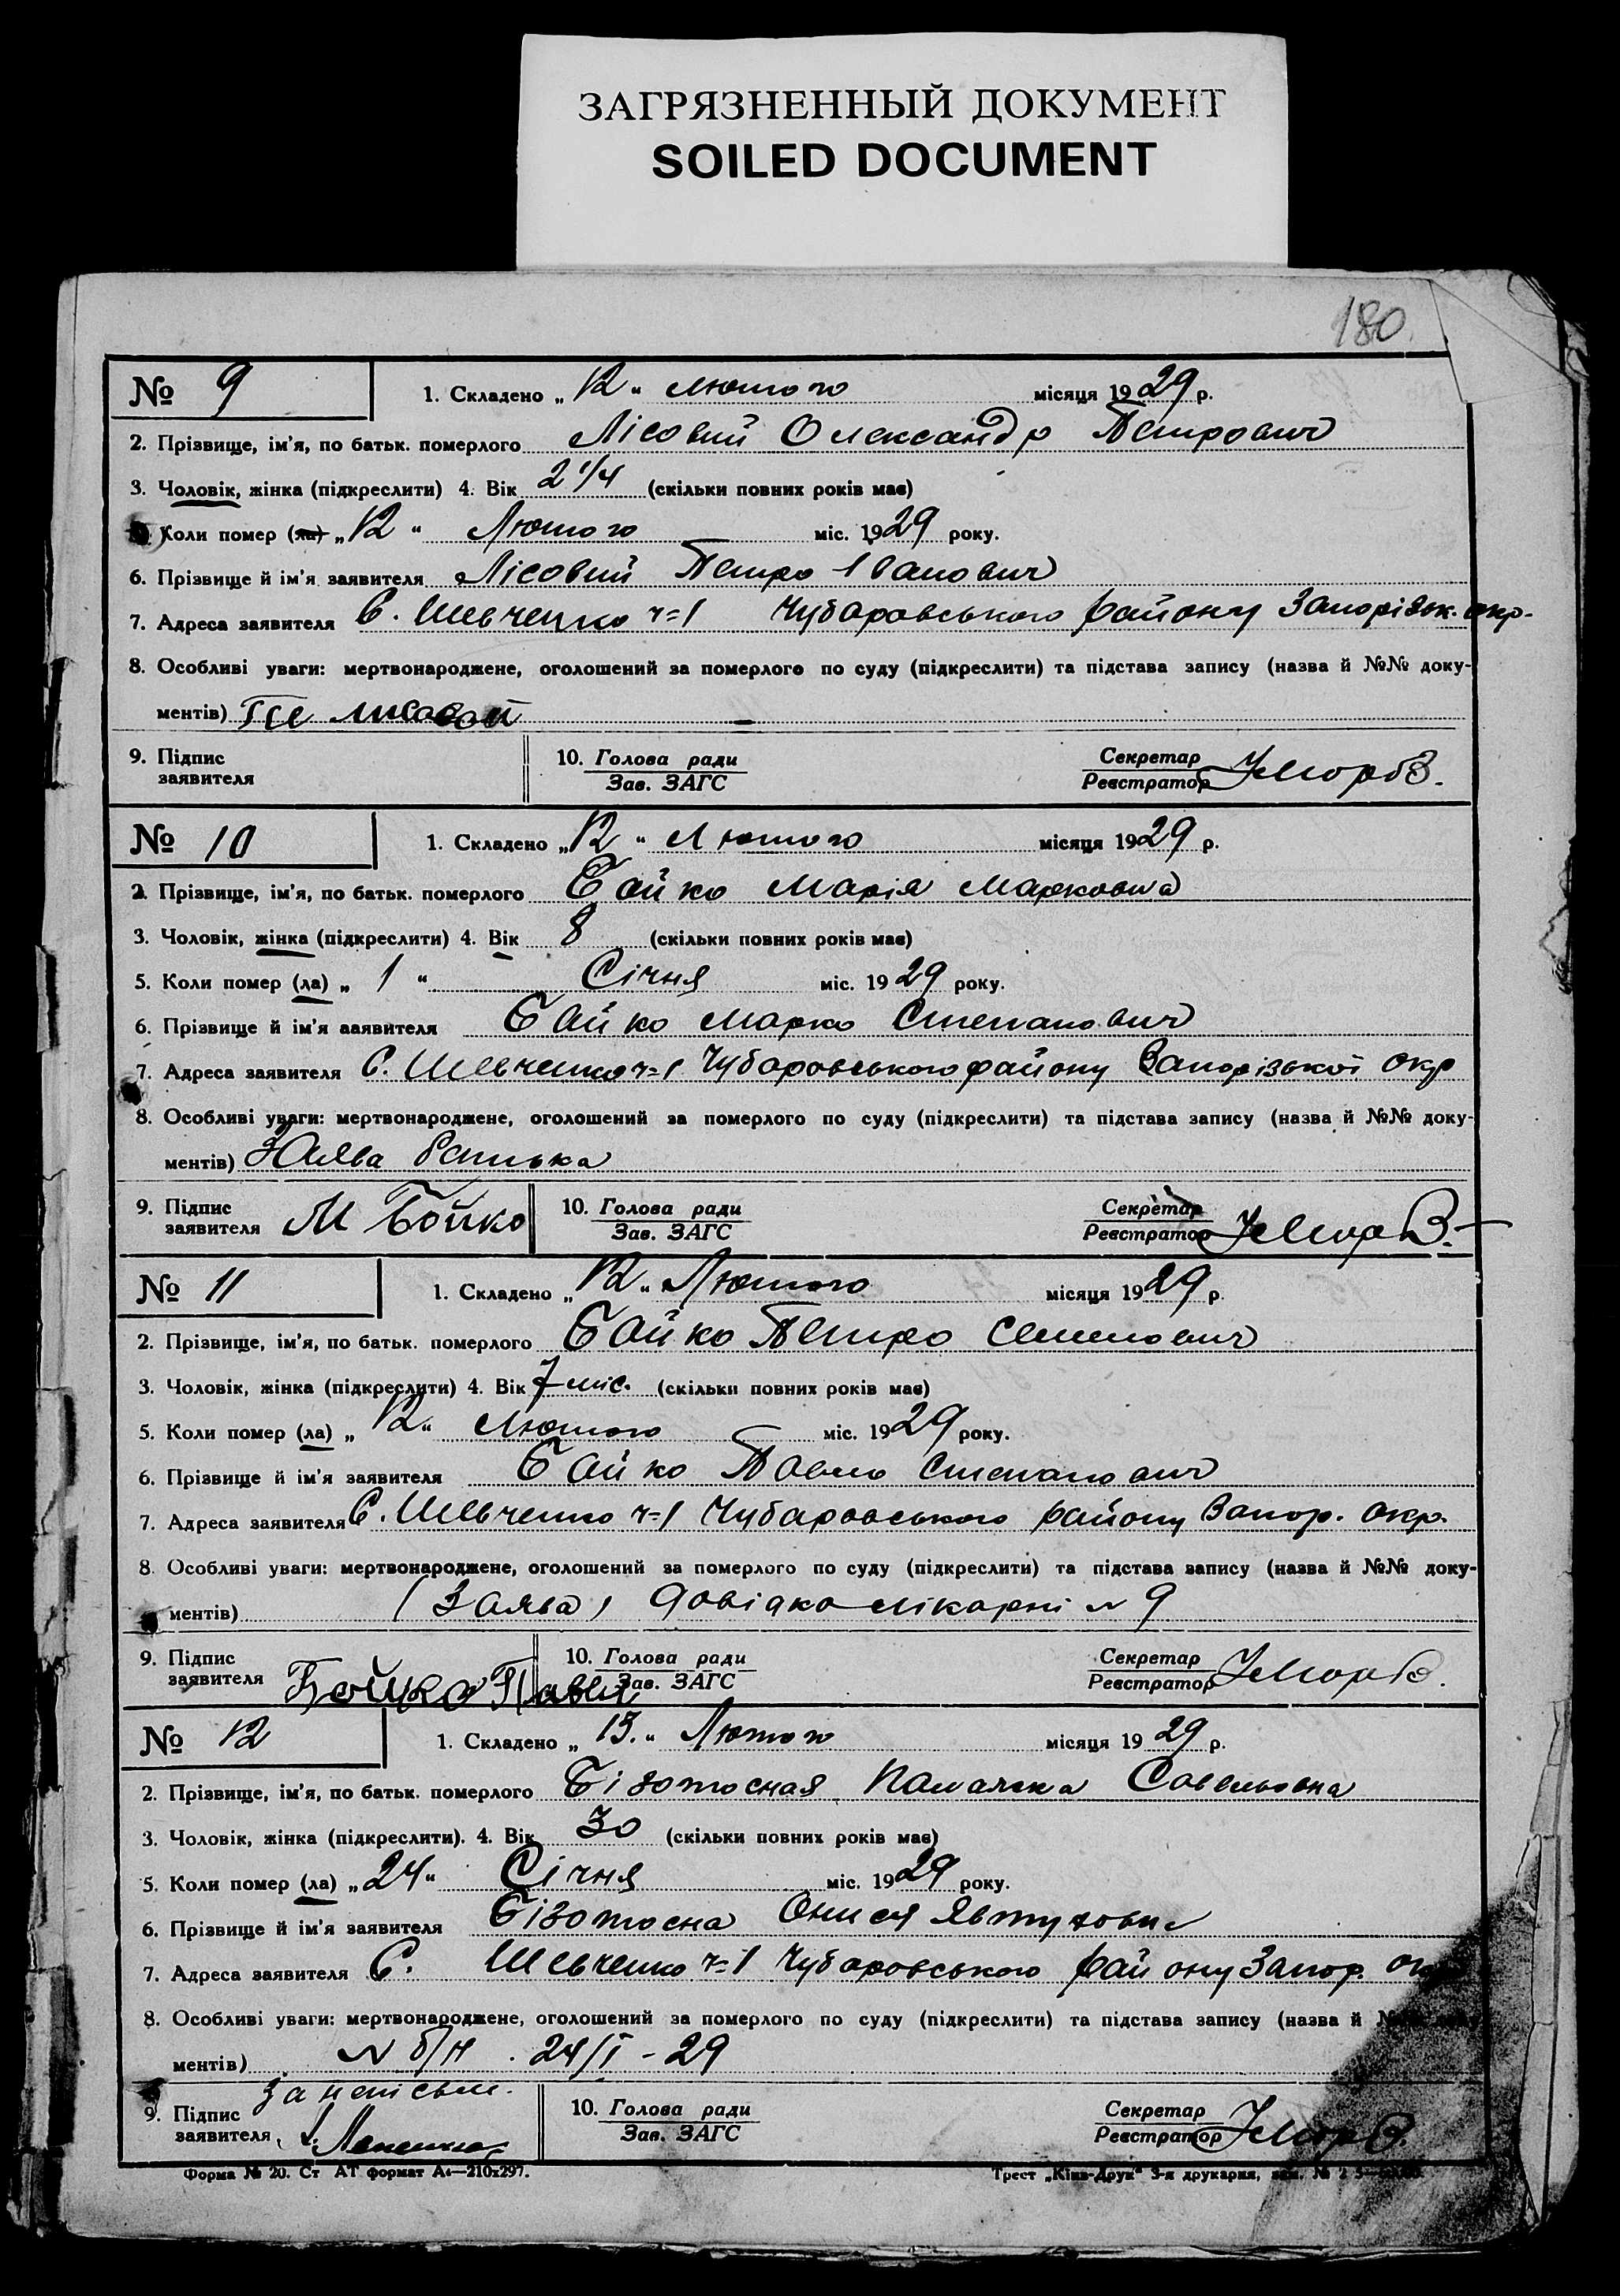 ЗАГРЯЗНЕННЫЙ ДОКУМЕНТ
SOILED DOCUMENT
180.
№ 9 1. Складено „ 12 “ Лютого місяця 1929 р.
2. Прізвище, ім'я, по батьк. померлого Лісовий Олександр Петрович
3. Чоловік, жінка (підкреслити) 4. Вік 2 1/4 (скільки повних років має)
Коли помер (ла) „ 12 “ Лютого міс. 1929 року.
6. Прізвище й ім'я заявителя Лісовий Петро Іванович
7. Адреса заявителя С. Шевченко ч=1 Чубаровського району Запорізьк. окр.
8. Особливі уваги: мертвонароджене, оголошений за померлого по суду (підкреслити) та підстава запису (назва й №№ доку-
ментів) Лисовой —
9. Підпис заявителя 10. Голова ради Зав. ЗАГС Секретар Реєстратор
№ 10 1. Складено „ 12 “ Лютого місяця 1929 р.
2. Прізвище, ім'я, по батьк. померлого Бойко Марія Марковна
3. Чоловік, жінка (підкреслити) 4. Вік 8 (скільки повних років має)
5. Коли помер (ла) „ 1 “ Січня міс. 1929 року.
6. Прізвище й ім'я заявителя Бойко Марко Степанович
7. Адреса заявителя С. Шевченко ч=1 Чубаровського району Запорізької окр
8. Особливі уваги: мертвонароджене, оголошений за померлого по суду (підкреслити) та підстава запису (назва й №№ доку-
ментів) Заява батька
9. Підпис заявителя М Бойко 10. Голова ради Зав. ЗАГС Секретар Реєстратор
№ 11 1. Складено „ 12 “ Лютого місяця 1929 р.
2. Прізвище, ім'я, по батьк. померлого Бойко Петро
3. Чоловік, жінка (підкреслити) 4. Вік 7 міс. (скільки повних років має)
5. Коли помер (ла) „ 12 “ Лютого міс. 1929 року.
6. Прізвище й ім'я заявителя Бойко Павло Степанович
7. Адреса заявителя С. Шевченко ч=1 Чубаровського району Запор. окр.
8. Особливі уваги: мертвонароджене, оголошений за померлого по суду (підкреслити) та підстава запису (назва й №№ доку-
ментів) (Заява) Довідка лікарні № 9
9. Підпис заявителя Бойко Павел 10. Голова ради Зав. ЗАГС Секретар Реєстратор
№ 12 1. Складено „ 15. “ Лютого місяця 1929 р.
2. Прізвище, ім'я, по батьк. померлого Савельовна
3. Чоловік, жінка (підкреслити). 4. Вік 30 (скільки повних років має)
5. Коли помер (ла) „ 24 “ Січня міс. 1929 року.
6. Прізвище й ім'я заявителя Онися
7. Адреса заявителя С. Шевченко ч=1 Чубаровського району Запор.
8. Особливі уваги: мертвонароджене, оголошений за померлого по суду (підкреслити) та підстава запису (назва й
ментів) № б/н . 24/I - 29
9. Підпис заявителя 10. Голова ради Зав. ЗАГС Секретар Реєстратор
Форма № 20. Ст АТ формат А4—210х297. Трест „Київ-Друк“ 3-я друкарня,